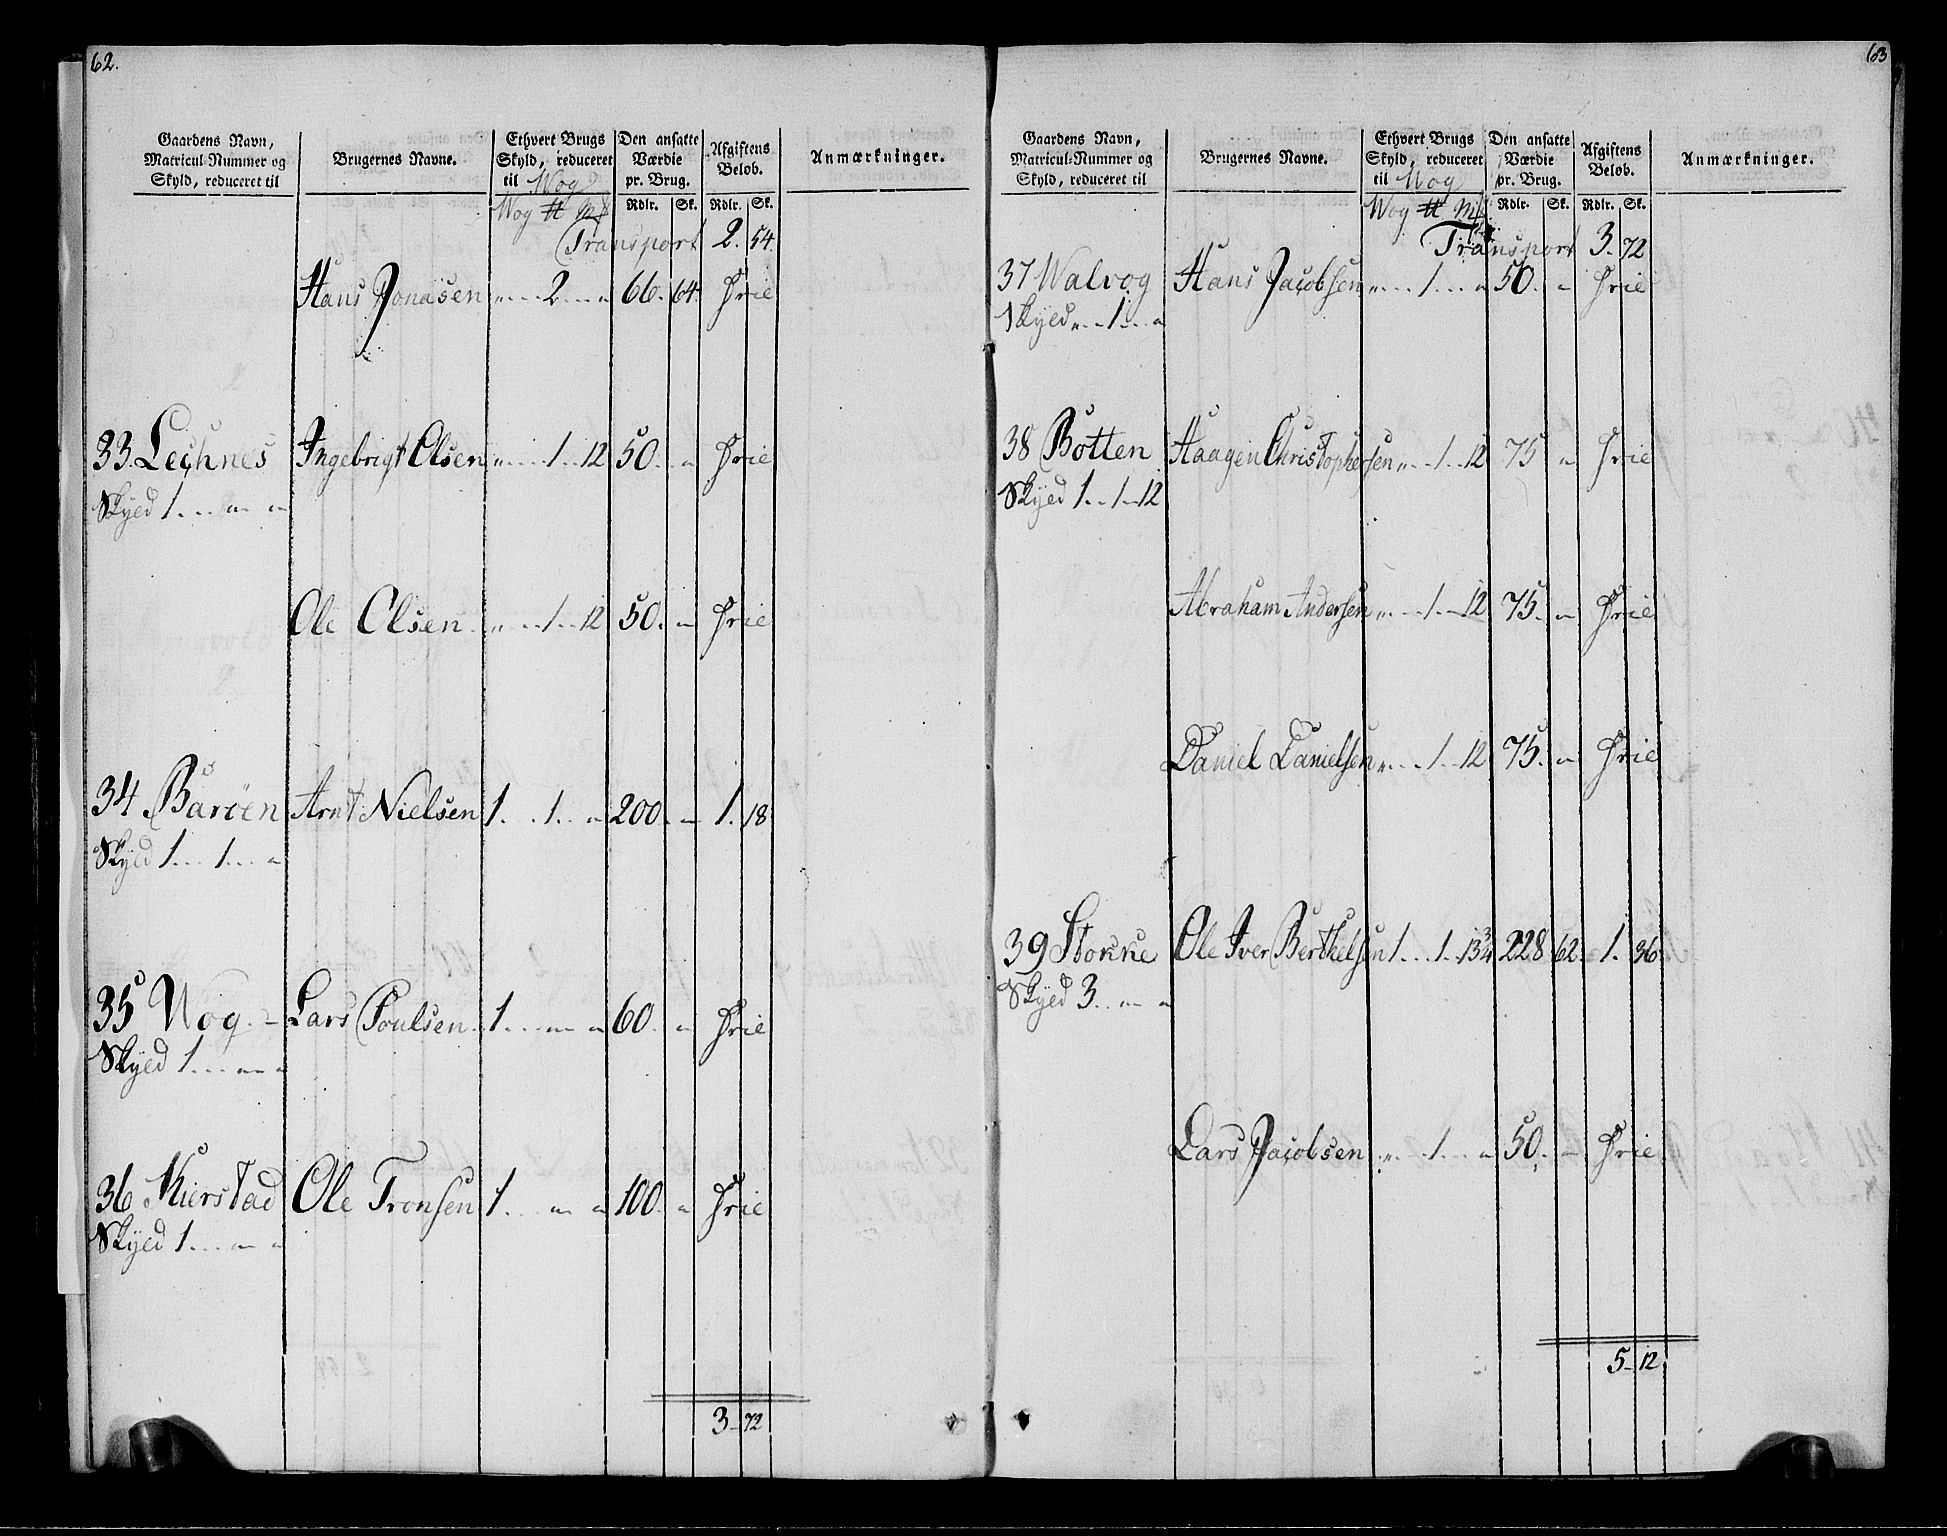 62.
Gaardens Navn, Matricul-Nummer og Skyld, reduceret til
Brugernes Navne.
Ethvert Brugs Skyld, reduceret til Wog
Den ansatte Værdie pr. Brug.
Afgiftens Beløb.
Anmærkninger.
Wog ℔ Mk Rdlr. Sk. Rdlr. Sk.
Transport 2. 54.
Hans Jonasen " .. 2 .. " 66. 64. Frie
33 Lechnes Ingebrigt Olsen " .. 1 .. 12 50. " Frie
Skyld 1 .. " "
Ole Olsen " .. 1 .. 12 50. " Frie
34 Barøen Arnt Nielsen 1. .. 1 .. " 200. " 1. 18
Skyld 1 .. 1 .. "
35 Wog Lars Poulsen 1 .. " " 60. " Frie
Skyld 1 .. " "
36 Kierstad Ole Tronsen 1 .. " " 100. " Frie
Skyld 1 .. " "
3 - 72
63
Gaardens Navn, Matricul-Nummer og Skyld, reduceret til
Brugernes Navne.
Ethvert Brugs Skyld, reduceret til Wog
Den ansatte Værdie pr. Brug.
Afgiftens Beløb.
Anmærkninger.
Wog ℔ Mk Rdlr. Sk. Rdlr. Sk.
Transport 3. 72
37 Walvog Hans Jacobsen " .. 1 .. " 50. " Frie
Skyld " .. 1 .. "
38 Botten Haagen Christophersen " .. 1 .. 12 75 " Frie
Skyld 1 .. 1 - 12
Abraham Andersen " .. 1 .. 12 75. " Frie
Daniel Danielsen " .. 1 .. 12 75. " Frie
39 Stokke Ole Iver Berthelsen 1 .. 1 .. 13¾ 228 62. 1. 36.
Skyld 3 .. " "
Lars Jacobsen " .. 1 .. " 50. " Frie
5 - 12